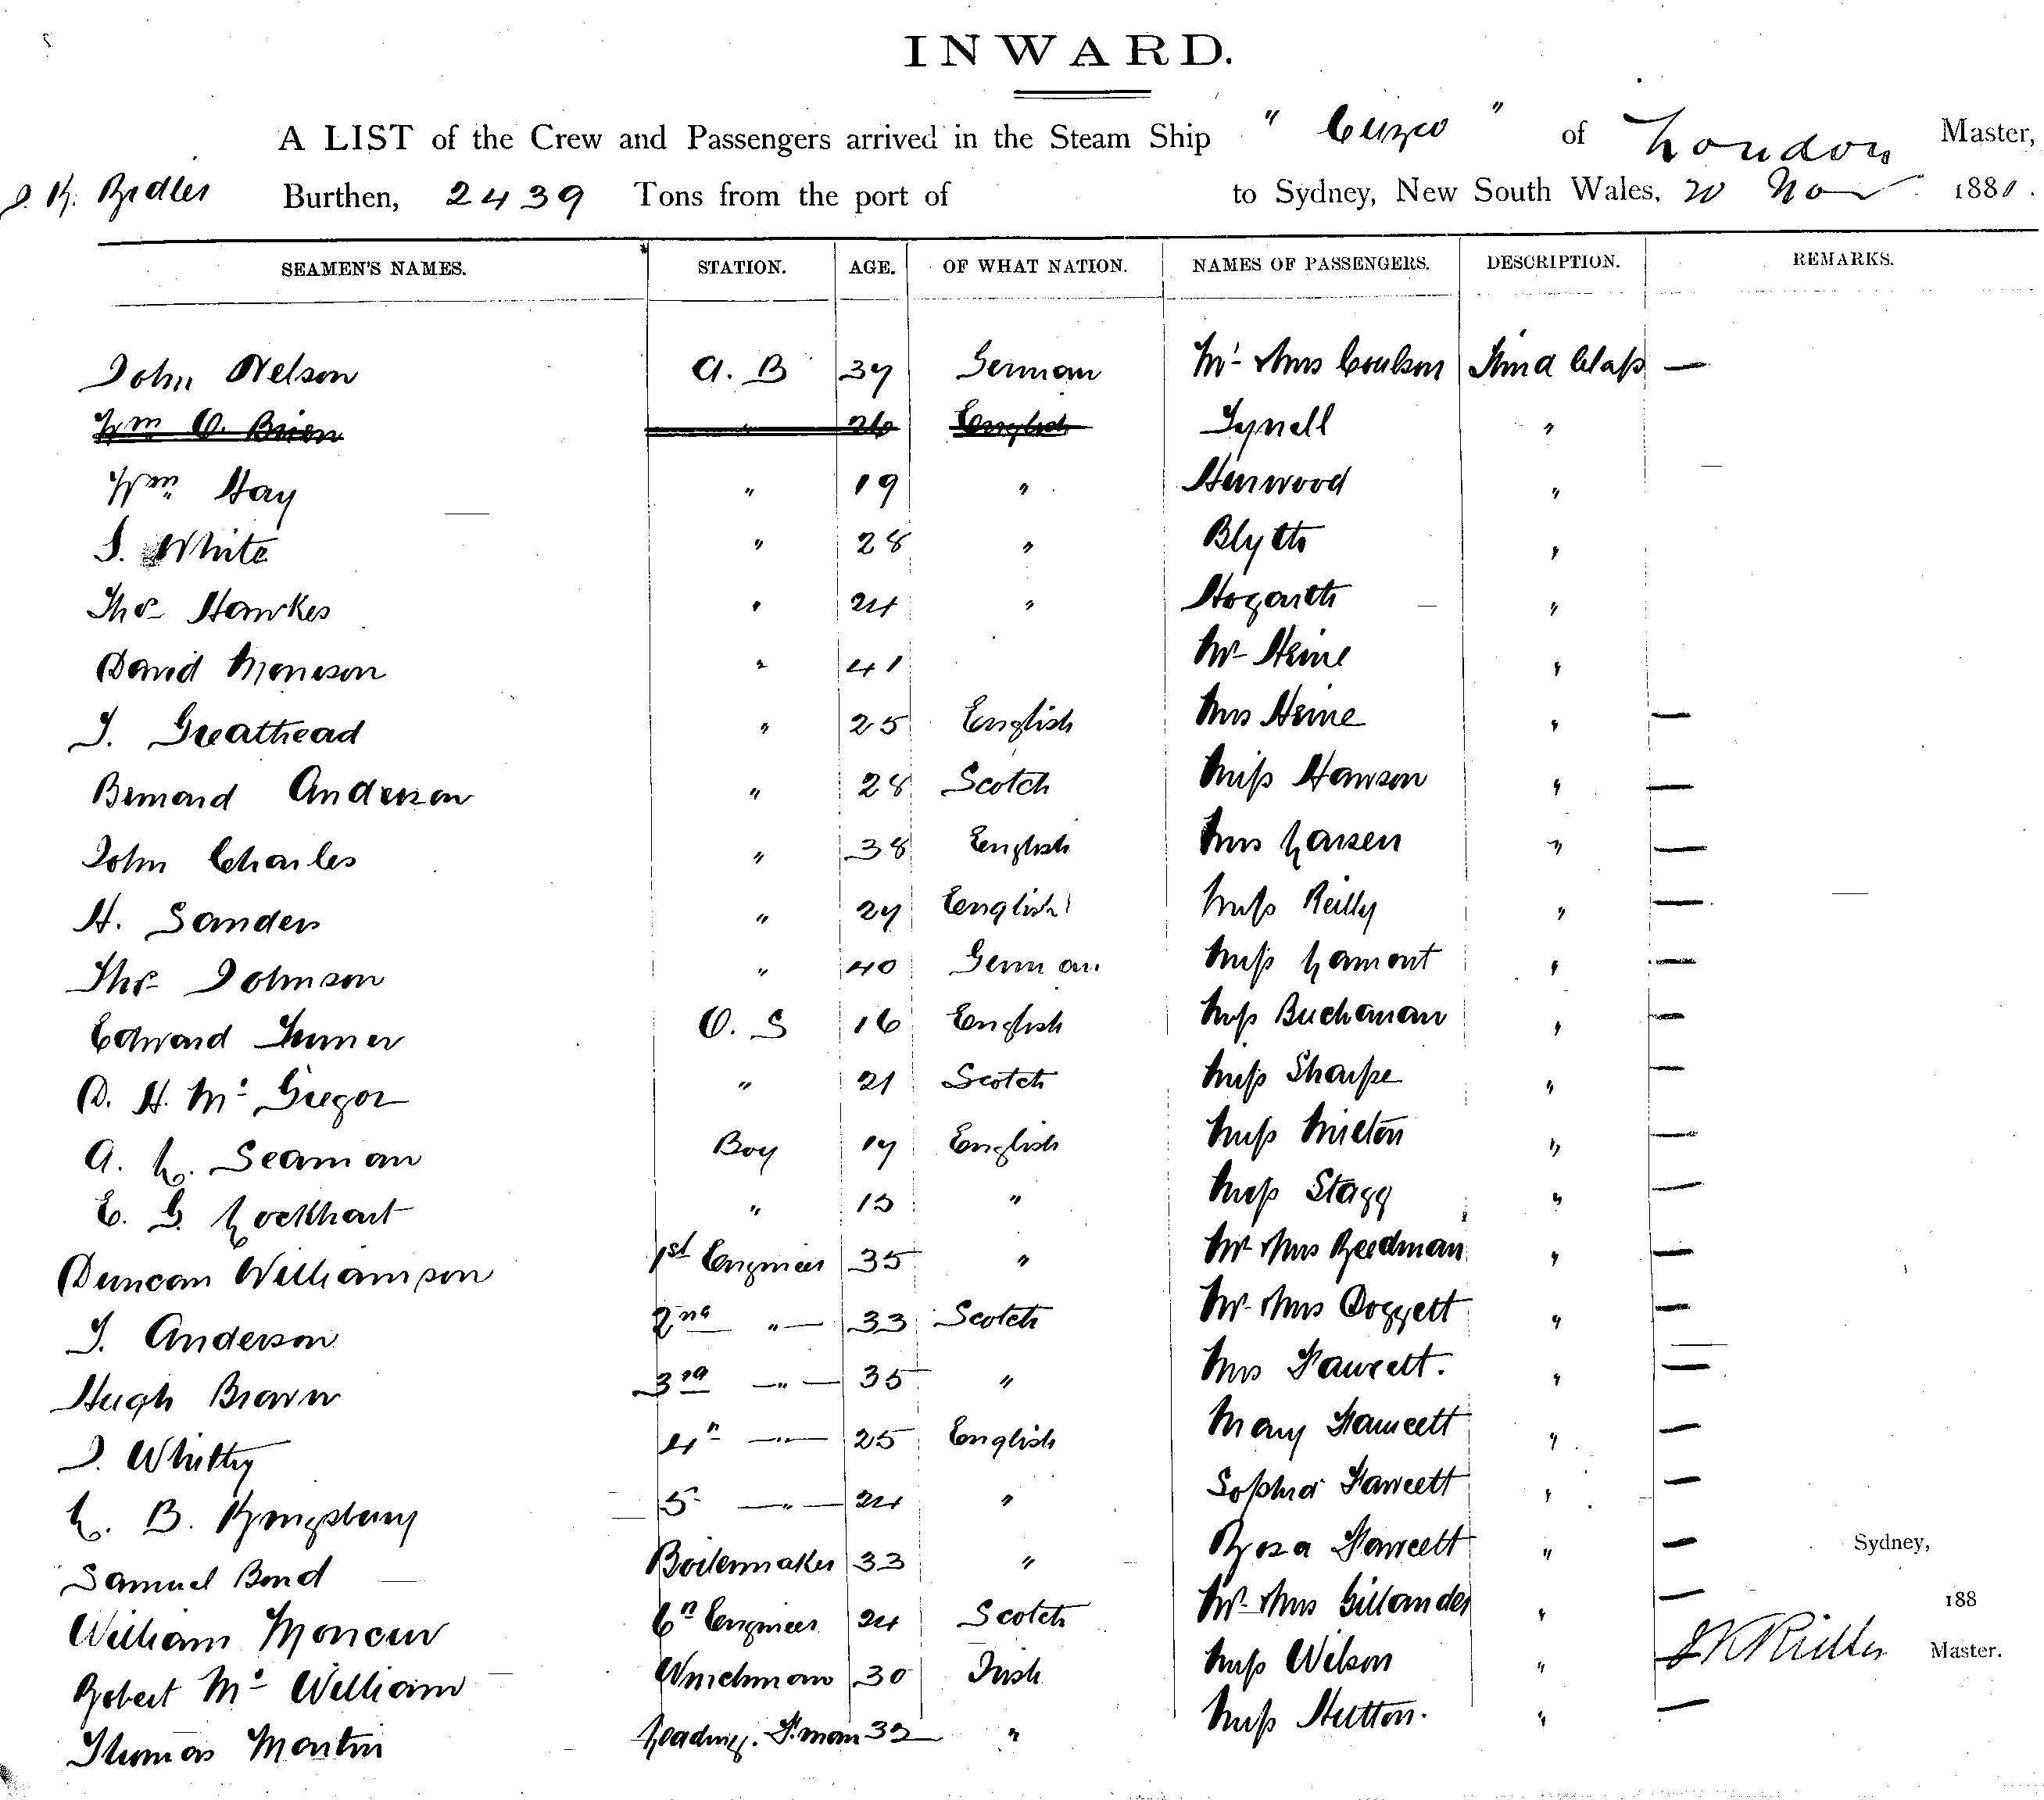 INWARD.
A LIST of the Crew and Passengers arrived in the Steam Ship " Cuzco " of London Master,
Burthen, 2439 Tons from the port of to Sydney, New South Wales, 20 Nov 188
SEAMEN'S NAMES. STATION. AGE. OF WHAT NATION. NAMES OF PASSENGERS. DESCRIPTION. REMARKS.
John Nelson A. B 37 German Mr & Mrs Coulson Class —
Wm O. Brien " 26 English Tynell "
Wm Hay " 19 " Henwood "
J. White " 28 " Blyth "
Thos Hawkes " 24 " Hogarth "
David " 41 Mr Heine "
T. Greathead " 25 English Mrs Heine " —
Bernard Anderson " 28 Scotch Miss Hawson " —
John Charles " 38 English Mrs Larsen " —
H. Sanders " 27 English Miss Reilly " —
Thos Johnson " 40 German Miss Lamont " —
Edward Turner O. S 16 English Miss Buchanan " —
D. H. Mc Gregor " 21 Scotch Miss Sharpe " —
A. L. Seaman Boy 17 English Miss Milton " —
E. G. Lockhart " 15 " Miss Stagg " —
Duncan Williamson 1st Engineer 35 " Mr & Mrs Reedman " —
T. Anderson 2nd " 33 Scotch Mr & Mrs Doggett " —
Hugh Brown 3rd " 35 " Mrs Fawcett. " —
J. Whitty 4th " 25 English Mary Fawcett " —
L. B. Kyngsbury 5 " 24 " Sophia Fawcett " —
Samuel Bond Boilermaker 33 " Rosa Fawcett " — Sydney,
William Moncur 6th Engineer 24 Scotch Mr & Mrs Gillander " — 188
Robert Mc William Winchman 30 Irish Miss Wilson " Master.
Thomas Martin Leading F.man 32 " Miss Hutton. " —